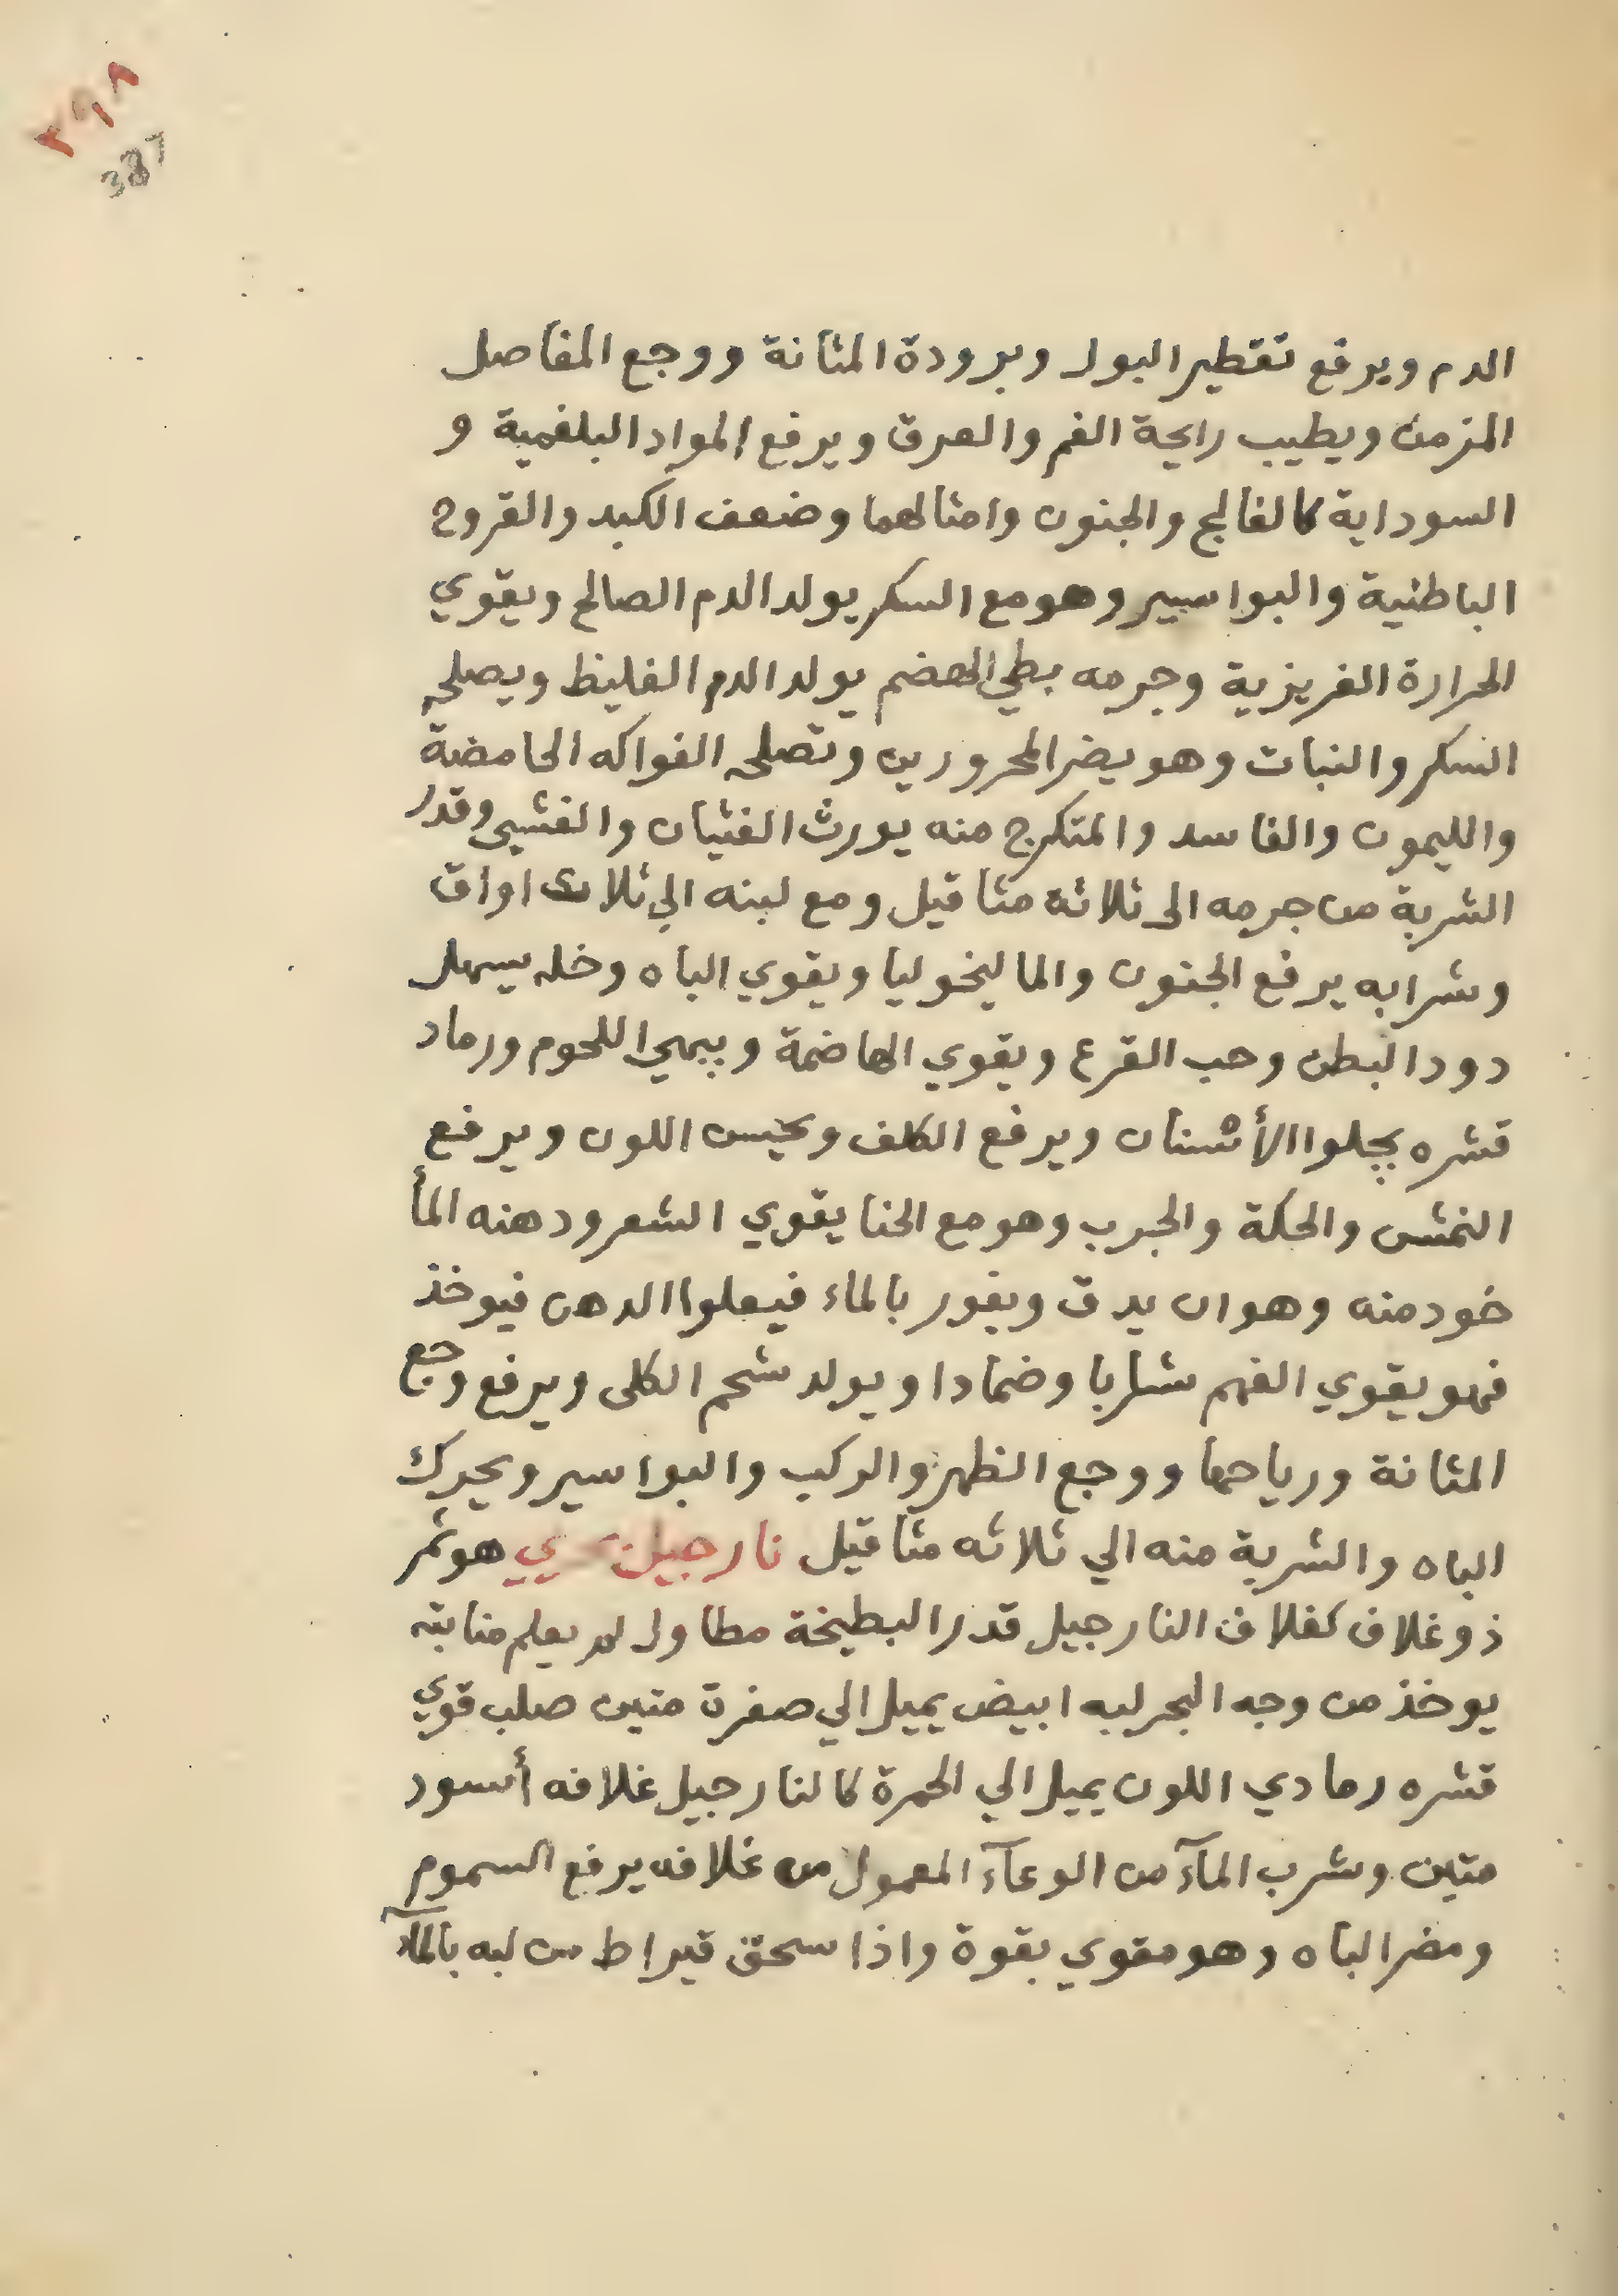 ٣٩٨
387
الدم ويرفع تقطير البول وبرودة المثانة ووجع المفاصل
المزمن ويطيب رايحة الفم والعرق ويرفع المواد البلغمية و
السوداية كالفالج والجنون وامثالهما وضعف الكبد والقروح
الباطنية والبواسير وهو مع السكر يولد الدم الصالح ويقوي
الحرارة الغريزية وجرمه بطي الهضم يولد الدم الغليظ ويصلحه
السكر والنبات وهو يضر المحرورين وتصلحه الفواكه الحامضة
والليمون والفاسد والمتكرج منه يورث الغثيان والغشي وقدر
الشربة من جرمه الى ثلاثة مثاقيل ومع لبنه الي ثلاث اواق
وشرابه يرفع الجنون والماليخوليا ويقوي الباه وخله يسهل
دود البطن وحب القرع ويقوي الهاضمة ويهري اللحوم ورماد
قشره يجلوا الأشنان ويرفع الكلف ويحسن اللون ويرفع
النمش والحكة والجرب وهو مع الحنا يقوي الشعر ودهنه المأ
خود منه وهو ان يدق ويفور بالماء فيعلوا الدهن فيوخذ
فهو يقوي الفهم شرابا وضمادا ويولد شحم الكلى ويرفع وجع
المثانة ورياحها ووجع الظهر والركب والبواسير ويحرك
الباه والشربة منه الي ثلاثه مثاقيل نارجيل بحري هو ثمر
ذو غلاف كغلاف النارجيل قدر البطيخة مطاول لم يعلم منابته
يوخذ من وجه البحر لبه ابيض يميل الي صفرة متين صلب قوي
قشره رمادي اللون يميل الي الحمرة كالنارجيل غلافه أسود
متين وشرب المآء من الوعآء المعمول من غلافه يرفع السموم
ومضر الباه وهو مقوي بقوة واذا سحق قيراط من لبه بالمآء